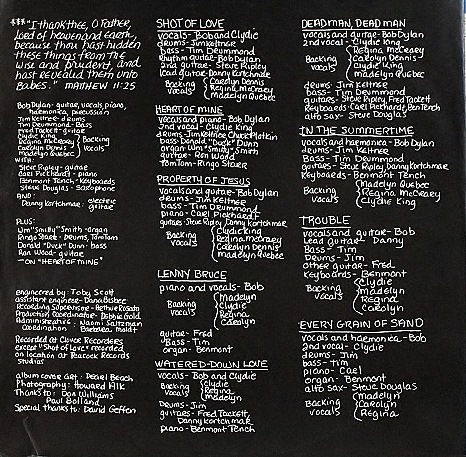 *** "I thank thee, O Father,
Lord of heaven and earth,
because thou hast hidden
these things from the
wise and prudent, and
hast revealed them unto
babes." MATTHEW 11:25
Bob Dylan - guitar, vocals, piano,
harmonica, percussion
Jim Keltner - drums
Tim Drummond - Bass
Fred Tackett - guitar
Clydie King
Regina McCreary
Carolyn Dennis
Madelyn Quebec
Backing
Vocals
WITH:
Steve Ripley - guitar
Carl Pickhardt - piano
Benmont Tench - Keyboards
Steve Douglas - saxophone
AND:
Danny Kortchmar - electric
guitar
PLUS:
Wm "Smitty" Smith - organ
Ringo Starr - Drums, Tom Tom
Donald "Duck" Dunn - bass
Ron Wood - guitar
- ON "HEART OF MINE"
engineered by: Toby Scott
assistant engineer - Dana Bisbee
Recording Supervisor - Arthur Rosato
Production Coordinator - Debbie Gold
Administrative - Naomi Saltzman
Coordination Barbara Moldt
Recorded at Clover Recorders
except "Shot of Love" recorded
on location at Peacock Records
Studios
album cover art: Pearl Beach
Photography: Howard Alk
Thanks to: Don Williams
Paul Bolland
Special thanks to: David Geffen
SHOT OF LOVE
vocals - Bob and Clydie
drums - Jim Keltner
bass - Tim Drummond
rhythm guitar - Bob Dylan
2nd guitar - Steve Ripley
lead guitar - Danny Kortchmar
Backing
vocals
Carolyn Dennis
Regina McCreary
Madelyn Quebec
HEART OF MINE
vocals and piano - Bob Dylan
2nd vocal - Clydie King
drums - Jim Keltner Chuck Plotkin
bass - Donald "Duck" Dunn
organ Wm "Smitty" Smith
guitar - Ron Wood
Tom Tom - Ringo Starr
PROPERTY OF JESUS
vocals and guitar - Bob Dylan
drums - Jim Keltner
bass - Tim Drummond
piano - Carl Pickhardt
guitars - Steve Ripley, Danny Kortchmar
Backing
vocals
Clydie King
Regina McCreary
Carolyn Dennis
Madelyn Quebec
LENNY BRUCE
piano and vocals - Bob
Backing
vocals
Madelyn
Clydie
Regina
Carolyn
guitar - Fred
Bass - Tim
organ - Benmont
WATERED-DOWN LOVE
vocals - Bob and Clydie
Backing
vocals
Clydie
Regina
Madelyn
Drums - Jim
guitars - Fred Tackett,
Danny Kortchmar
piano - Benmont Tench
DEADMAN, DEADMAN
vocals and guitar - Bob Dylan
2nd vocal - Clydie King
Backing
vocals
Regina McCreary
Carolyn Dennis
Clydie King
Madelyn Quebec
drums - Jim Keltner
bass - Tim Drummond
guitars - Steve Ripley, Fred Tackett
Keyboards - Carl Pickhardt, Ben Tench
alto sax - Steve Douglas
IN THE SUMMERTIME
vocals and harmonica - Bob Dylan
drums - Jim Keltner
Bass - Tim Drummond
guitars - Steve Ripley, Danny Kortchmar
Keyboards - Benmont Tench
Backing
vocals
Madelyn Quebec
Regina McCreary
Clydie King
TROUBLE
vocals and guitar - Bob
Lead guitar - Danny
Bass - Tim
Drums - Jim
other guitar - Fred
Keyboards - Benmont
Backing
vocals
Clydie
Madelyn
Regina
Carolyn
EVERY GRAIN OF SAND
vocals and harmonica - Bob
2nd vocal - Clydie
drums - Jim
bass - Tim
piano - Carl
organ - Benmont
alto sax - Steve Douglas
Backing
vocals
Madelyn
Carolyn
Regina